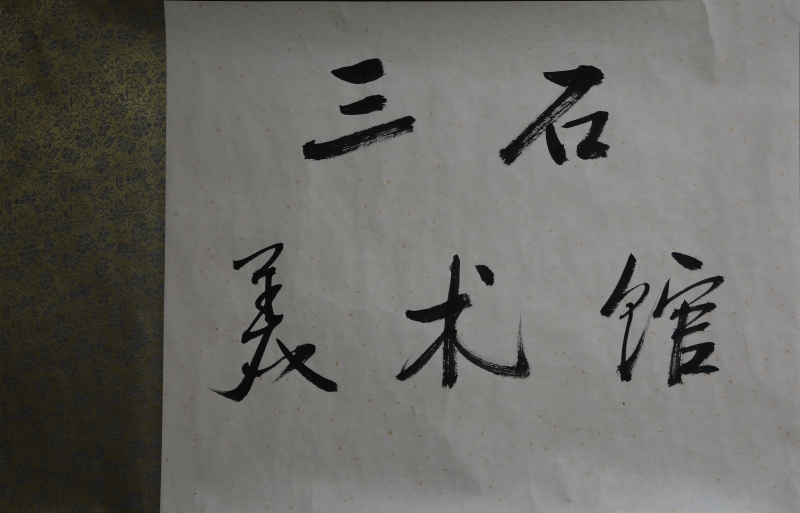 三石
美术馆